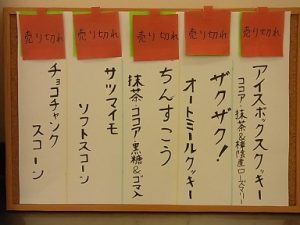 売り切れ
アイスボックスクッキー
ココア・抹茶&樺陰産ローズマリー
売り切れ
ザクザク!
オートミールクッキー
売り切れ
ちんすこう
抹茶・ココア・黒糖&ゴマ
売り切れ
サツマイモ
ソフトスコーン
売り切れ
チョコチャンク
スコーン